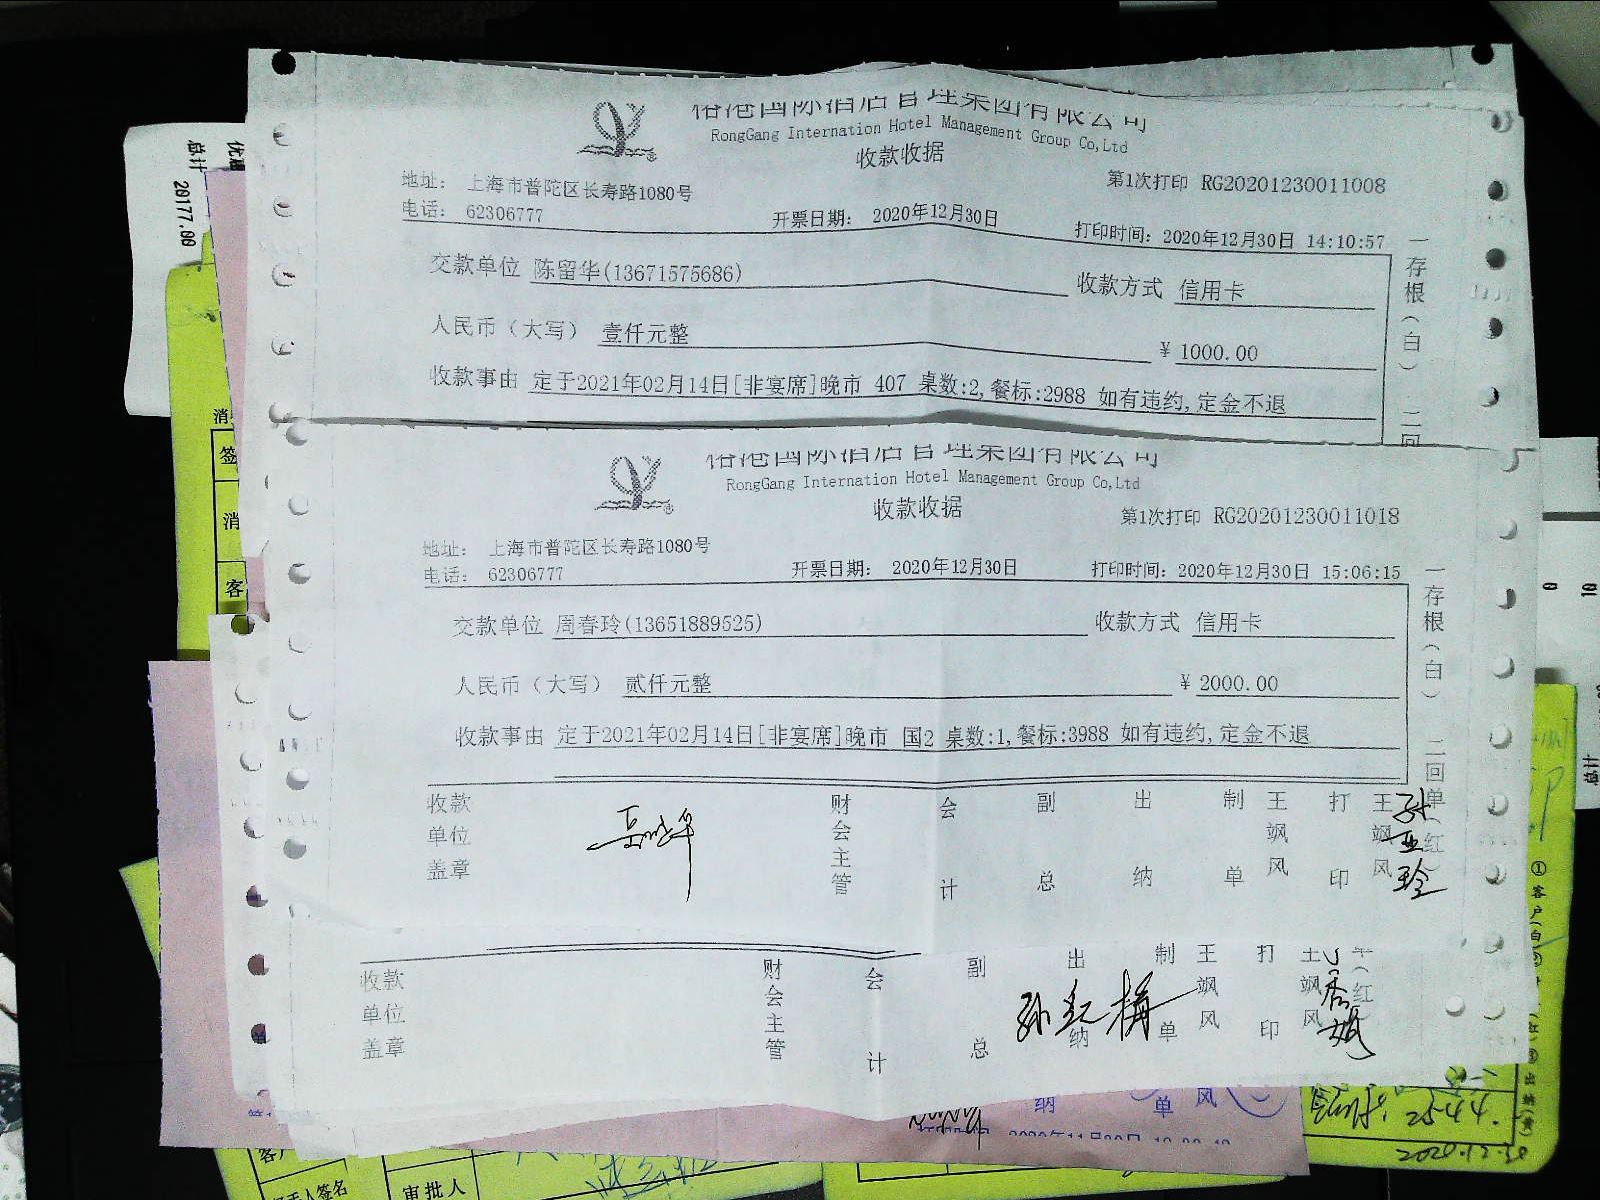 裕港国际酒店管理集团有限公司
RongGang Internation Hotel Management Group Co,Ltd
收款收据
地址： 上海市普陀区长寿路1080号
第1次打印 RG20201230011008
电话： 62306777
开票日期： 2020年12月30日
打印时间：2020年12月30日 14:10:57
交款单位 陈留华(13671575686)
收款方式 信用卡
人民币（大写） 壹仟元整
￥ 1000.00
收款事由 定于2021年02月14日[非宴席]晚市 407 桌数:2,餐标:2988 如有违约,定金不退
一存根（白） 二回
裕港国际酒店管理集团有限公司
RongGang Internation Hotel Management Group Co,Ltd
收款收据
地址： 上海市普陀区长寿路1080号
第1次打印 RG20201230011018
电话： 62306777
开票日期： 2020年12月30日
打印时间：2020年12月30日 15:06:15
交款单位 周春玲(13651889525)
收款方式 信用卡
人民币（大写） 贰仟元整
￥ 2000.00
收款事由 定于2021年02月14日[非宴席]晚市 国2 桌数:1,餐标:3988 如有违约,定金不退
一存根（白） 二回单（红）
收款单位盖章
财会主管
会计
副总
出纳
制单
王飒风
打印
王飒风
收款单位盖章
财会主管
会计
副总
出纳
孙红梅
制单
王飒风
打印
王飒风
单（红）
总计
20177.00
消
签
消
客
纳
单
风
审批人
人签名
2020.12.30
①客户（白）